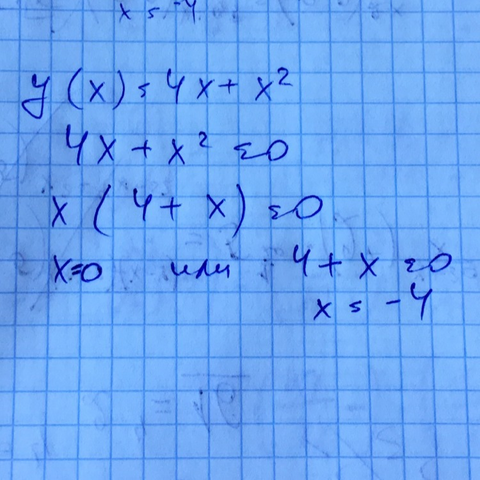 x = -4
y(x) = 4x + x²
4x + x² = 0
x(4 + x) = 0
x=0 или 4 + x = 0
x = -4